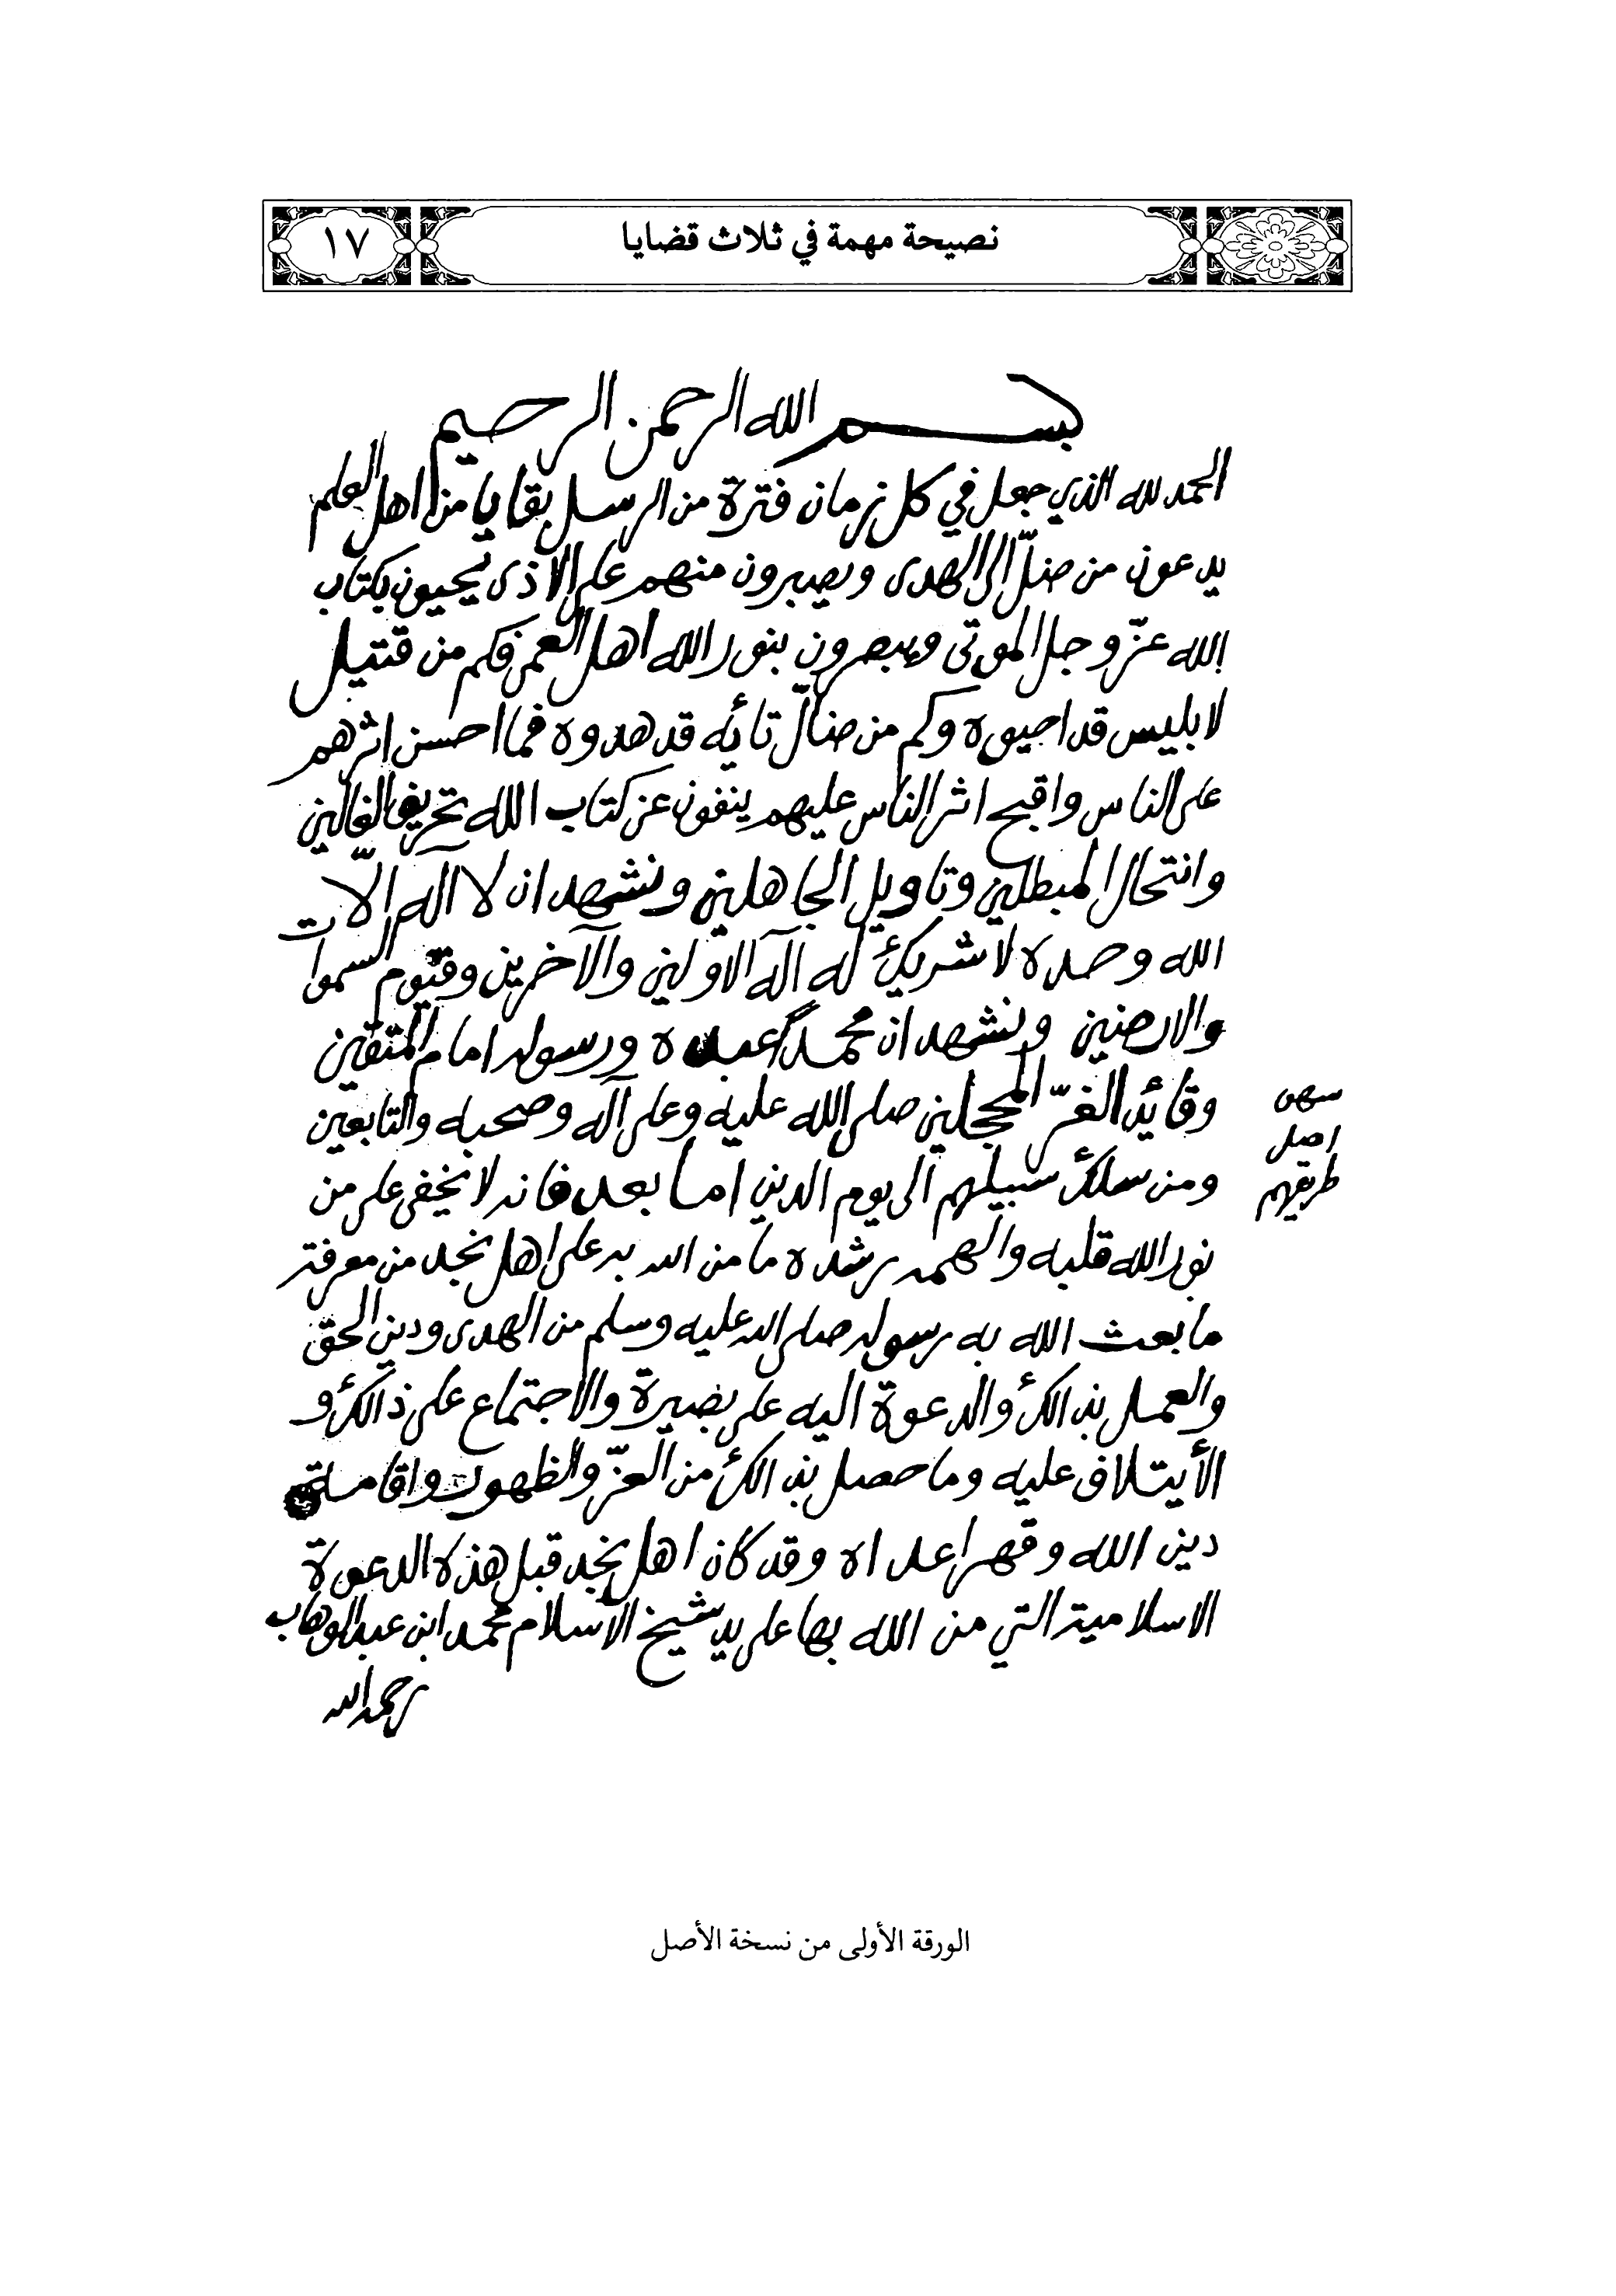 نصيحة مهمة في ثلاث قضايا
١٧
بسم الله الرحمن الرحيم
الحمد لله الذي جعل في كل زمان فترة من الرسل بقايا من اهل العلم
يدعون من ضلّ الى الهدى ويصبرون منهم على الاذى يحيون بكتاب
الله عزّ وجل الموتى ويبصرون بنور الله اهل العمى فكم من قتيل
لابليس قد احيوه وكم من ضالّ تائه قد هدوه فما احسن اثرهم
على الناس واقبح اثر الناس عليهم ينفون عن كتاب الله تحريف الغالين
وانتحال المبطلين وتاويل الجاهلين ونشهد ان لا اله الّا
الله وحده لا شريك له اله الاولين والآخرين وقيّوم السموات
والارضين ونشهد ان محمداً عبده ورسوله امام المتقين
وقائد الغرّ المحجلين صلى الله عليه وعلى آله وصحبه والتابعين
ومن سلك سبيلهم الى يوم الدين اما بعد فانه لا يخفى على من
سهى
اصل
طريقهم
نور الله قلبه والهمه رشده ما من الله به على اهل نجد من معرفة
ما بعث الله به رسوله صلى الله عليه وسلم من الهدى ودين الحق
والعمل بذالك والدعوة اليه على بصيرة والاجتماع على ذالك و
الأيتلاف عليه وما حصل بذالك من العزّ والظهور واقامة
دين الله وقهر اعداه وقد كان اهل نجد قبل هذه الدعوة
الاسلامية التي من الله بها على يد شيخ الاسلام محمد ابن عبد الوهاب
رحمه الله
الورقة الأولى من نسخة الأصل